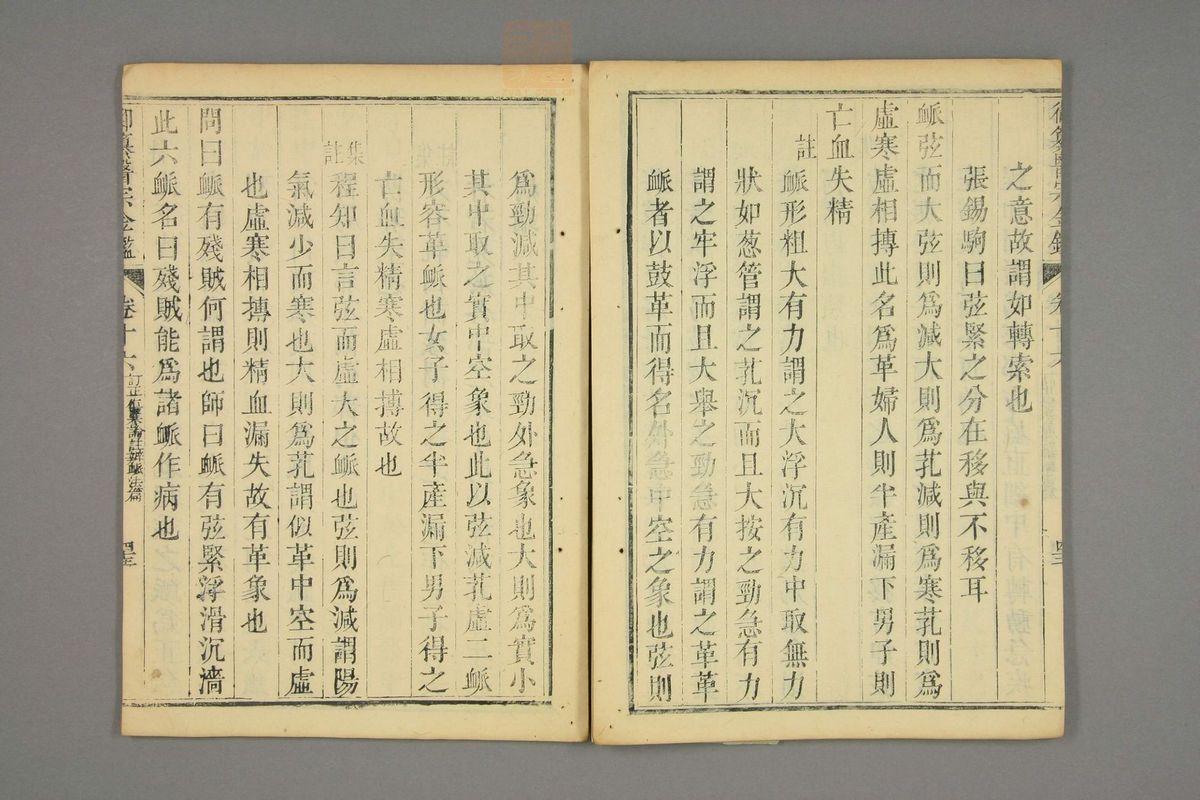 御纂醫宗金鑑 卷十六 四三
之意故謂如轉索也
張錫駒曰弦緊之分在移與不移耳
脈弦而大弦則爲減大則爲芤減則爲寒芤則爲
虛寒虛相摶此名爲革婦人則半產漏下男子則
亡血失精
註
脈形粗大有力謂之大浮沉有力中取無力
狀如葱管謂之芤沉而且大按之勁急有力
謂之牢浮而且大舉之勁急有力謂之革革
脈者以鼓革而得名外急中空之象也弦則
爲勁減其中取之勁外急象也大則爲實小
其中取之實中空象也此以弦減芤虛二脈
形容革脈也女子得之半產漏下男子得之
亡血失精寒虛相摶故也
集註
程知曰言弦而虛大之脈也弦則爲減謂陽
氣減少而寒也大則爲芤謂似革中空而虛
也虛寒相摶則精血漏失故有革象也
問曰脈有殘賊何謂也師曰脈有弦緊浮滑沉濇
此六脈名曰殘賊能爲諸脈作病也
御纂醫宗金鑑 卷十六 訂正傷寒論註辨脈法篇 四三